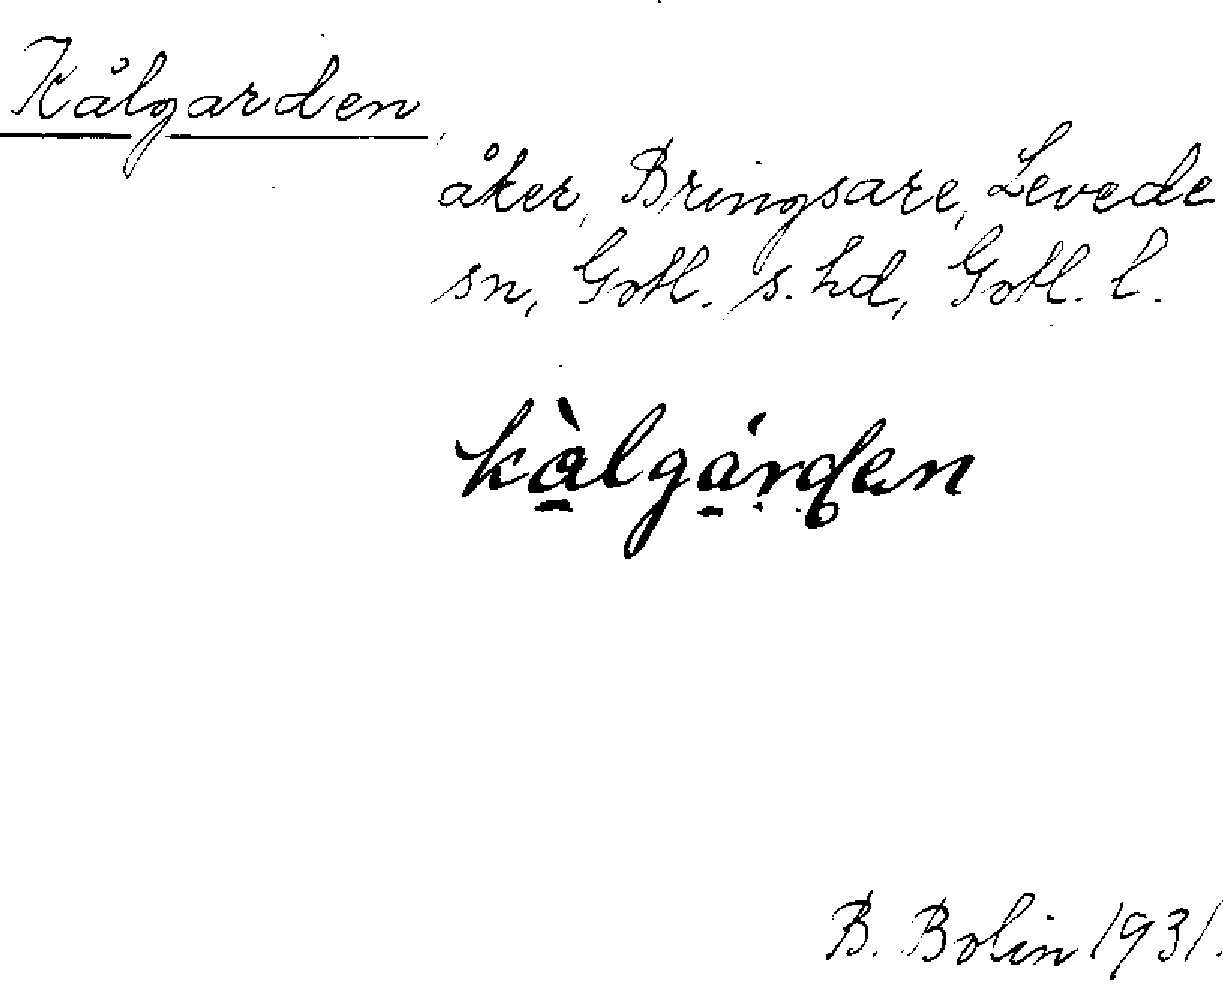 Kålgarden,
åker, Bringsare, Levede
sn, Gotl. s. hd, Gotl. l.
kàlgárden
B. Bolin 1931.